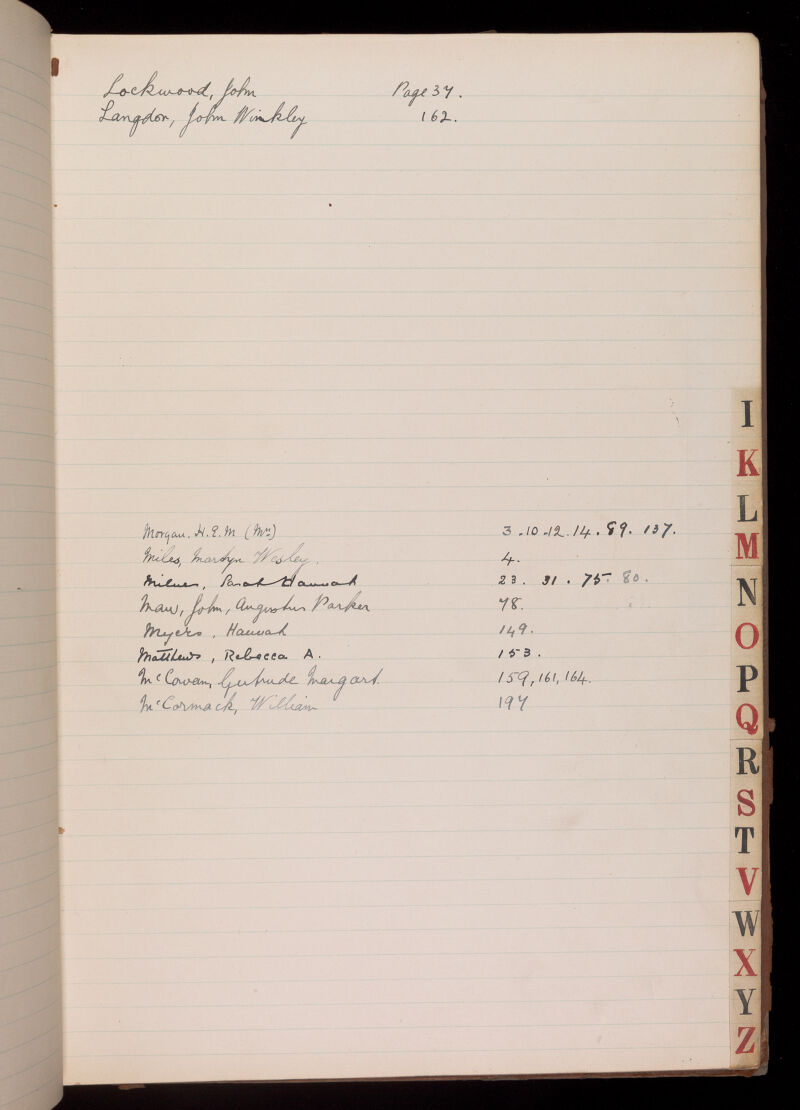 Lockwood, John Page 37.
Langdon, John Winkley 162.
Morgan. H. E. M (Mrs) 3.10.12.14.89.137.
Miles, Martyn Wesley. 4.
Milner, Sarah Hannah 23. 31. 75. 80.
Maw, John, Augustus Parker 78.
Myers, Hannah 149.
Matthews, Rebecca A. 153.
McCowan, Gertrude Margart. 159, 161, 164.
McCormack, William 197
I
K
L
M
N
O
P
Q
R
S
T
V
W
X
Y
Z